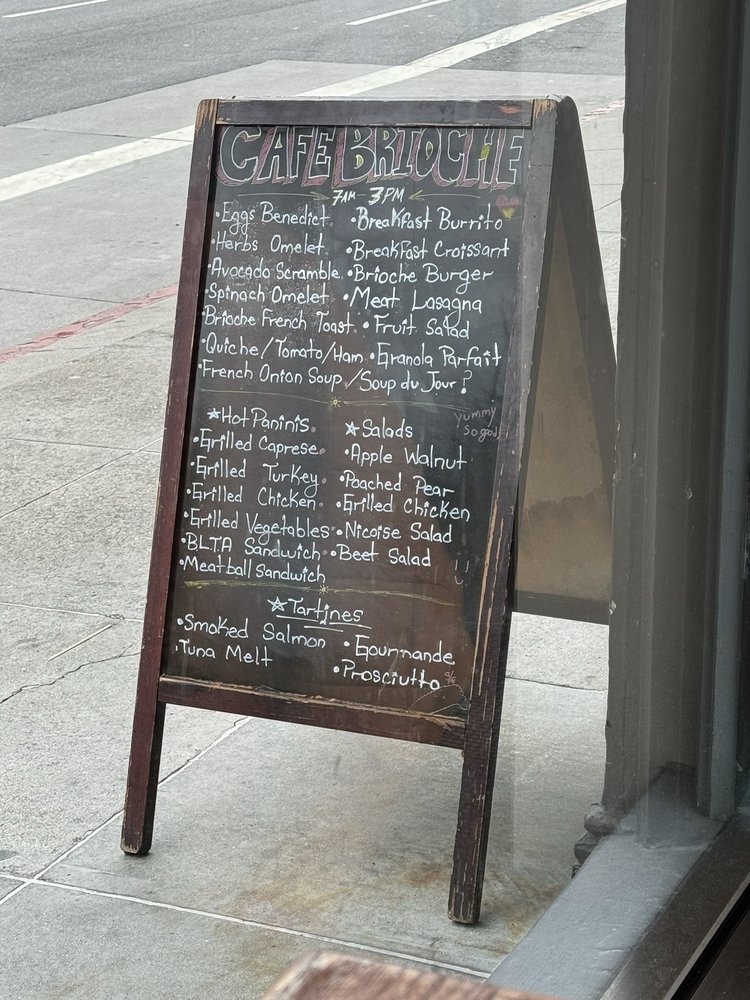 CAFE BRIOCHE
7AM - 3PM
•Eggs Benedict •Breakfast Burrito
•Herbs Omelet •Breakfast Croissant
•Avocado Scramble •Brioche Burger
•Spinach Omelet •Meat Lasagna
•Brioche French Toast •Fruit Salad
•Quiche/Tomato/Ham •Granola Parfait
•French Onion Soup/Soup du Jour?
yummy
so good
☆Hot Paninis
•Grilled Caprese
•Grilled Turkey
•Grilled Chicken
•Grilled Vegetables
•BLTA Sandwich
•Meatball Sandwich
☆Salads
•Apple Walnut
•Poached Pear
•Grilled Chicken
•Nicoise Salad
•Beet Salad
☆Tartines
•Smoked Salmon •Gourmande
•Tuna Melt •Prosciutto